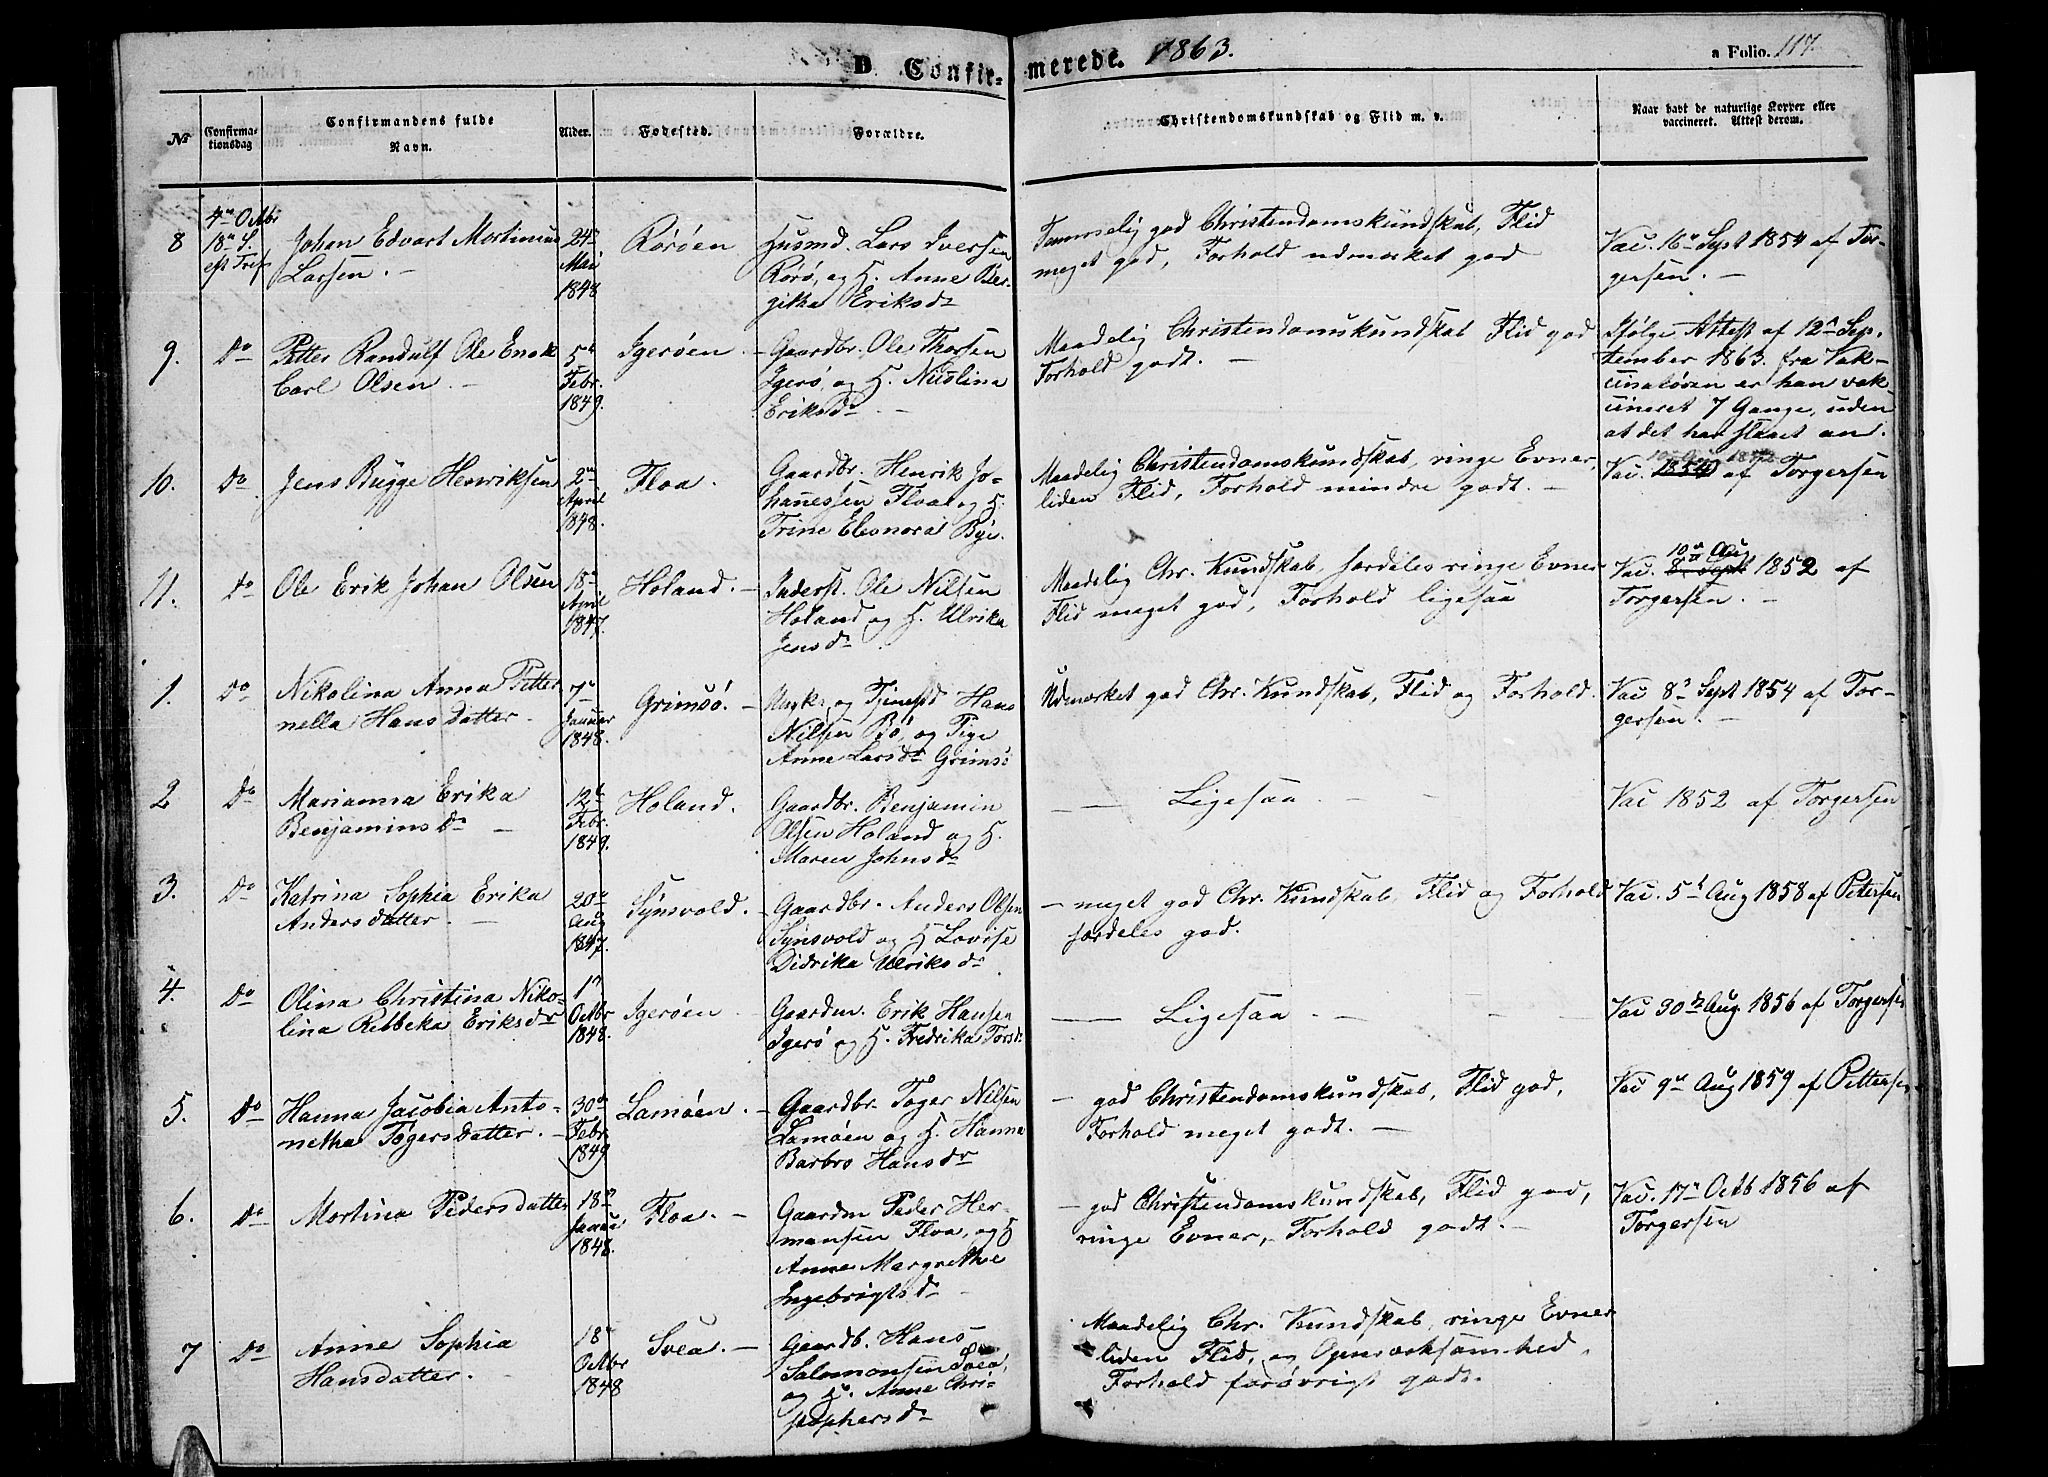 D Confir- merede. 1863. a Folio. 117.
No
Confirma-
tionsdag
Confirmandens fulde
Navn.
Alder.
Fødested.
Forældre.
Christendomskundskab og Flid m. v.
Naar havt de naturlige Kopper eller
vaccineret. Attest derom.
8
4de Octbr
18de S.
eft Tref
Johan Edvart Mortinius
Larsen. -
24de
Mai
1848
Rørøen
Husmd. Lars Iversen
Rørø, og H. Anne Ber-
githa Eriksdr
Temmelig god Christendomskundskab, Flid
meget god, Forhold udmærket god
Vac. 16de Sept 1854 af Tor-
gersen. -
9.
Do
Petter Randulf Ole Enok
Carl Olsen. -
5te
Febr.
1849.
Igerøen. -
Gaardbr. Ole Thorsen
Igerø, og H. Nielsina
Eriksdr -
Maadelig Christendomskundskab Flid god
Forhold godt. -
Ifølge Attest af 12te Sep-
tember 1863. fra Vak-
cinatøren er han vak
cineret 7 Gange, uden
at det har slaaet an.
10.
Do
Jens Bugge Henriksen
2den
April
1848.
Floa.
Gaardbr. Henrik Jo-
hanessen Floa og H.
Trine Eleonora Byе.
Maadelig Christendomskundskab, ringe Evner,
liden Flid, Forhold mindre godt. -
Vac. 1854 af Torgersen
11.
Do
Ole Erik Johan Olsen
18de
April
1847.
Holand. -
Inderst. Ole Nilsen
Holand og H. Ulrika
Jensdr
Maadelig Chr. Kundskab, særdeles ringe Evner
Flid meget god, Forhold ligesaa
10de Aug
Vac. 8de Sept 1852 af
Torgersen. -
1.
Do
Nikolina Anna Petter
nella Hans Datter -
7de
Januar
1848.
Grimsø. -
Ungk. og Tjenestd Hans
Nilsen Bø, og Pige
Anne Larsdr Grimsø
Udmærket god Chr. Kundskab, Flid og Forhold.
Vac 8de Sept 1854 af Tor-
gersen. -
2
Do
Marianna Erika
Benjaminsdr -
12te
Febr.
1849.
Holand.
Gaardbr. Benjamin
Olsen Holand og H.
Maren Johnsdr
- Ligesaa. - -
Vac 1852 af Torgersen
3.
Do
Katrina Sophia Erika
Andersdatter -
20de
Aug
1847.
Synsvold. -
Gaardbr. Anders Olsen
Synsvold og H Lovise
Didrika Ulriksdr
- meget god Chr. Kundskab, Flid og Forhold
særdeles god.
Vac. 5te Aug 1858 af Petersen
4.
Do
Olina Christina Niko-
lina Rebbeka Eriksdr
1ste
Octbr
1848.
Igerøen
Gaardm. Erik Hansen
Igerø og H. Fredrika Torsdr
- Ligesaa - - -
Vac 30te Aug. 1856 af Torgersen
5.
Do
Hanna Jacobia Anto-
netha Tøgersdatter. -
30de
Febr
1849
Lamøen. -
Gaardbr. Tøger Nilsen
Lamøen og H. Hanna
Barbro Hansdr
- god Christendomskundskab, Flid god,
Forhold meget godt. -
Vac 9de Aug 1859 af Pettersen
6.
Do
Mortina Pedersdatter
18de
Januar
1848.
Floa. -
Gaardm Peder Her-
mansen Floa, og H
Anne Margrethe
Ingebrigtsdr
- god Christendomskundskab, Flid god,
ringe Evner, Forhold godt. -
Vac. 17de Octb 1856 af
Torgersen
7
Do
Anne Sophia
Hansdatter. -
18de
Octbr
1848
Svea. -
Gaardb. Hans
Salomonsen Svea,
og H. Anne Chri-
stophersdr
Maadelig Chr. Kundskab, ringe Evner
liden Flid, og Opmærksomhed,
Forhold forøvrigt godt.